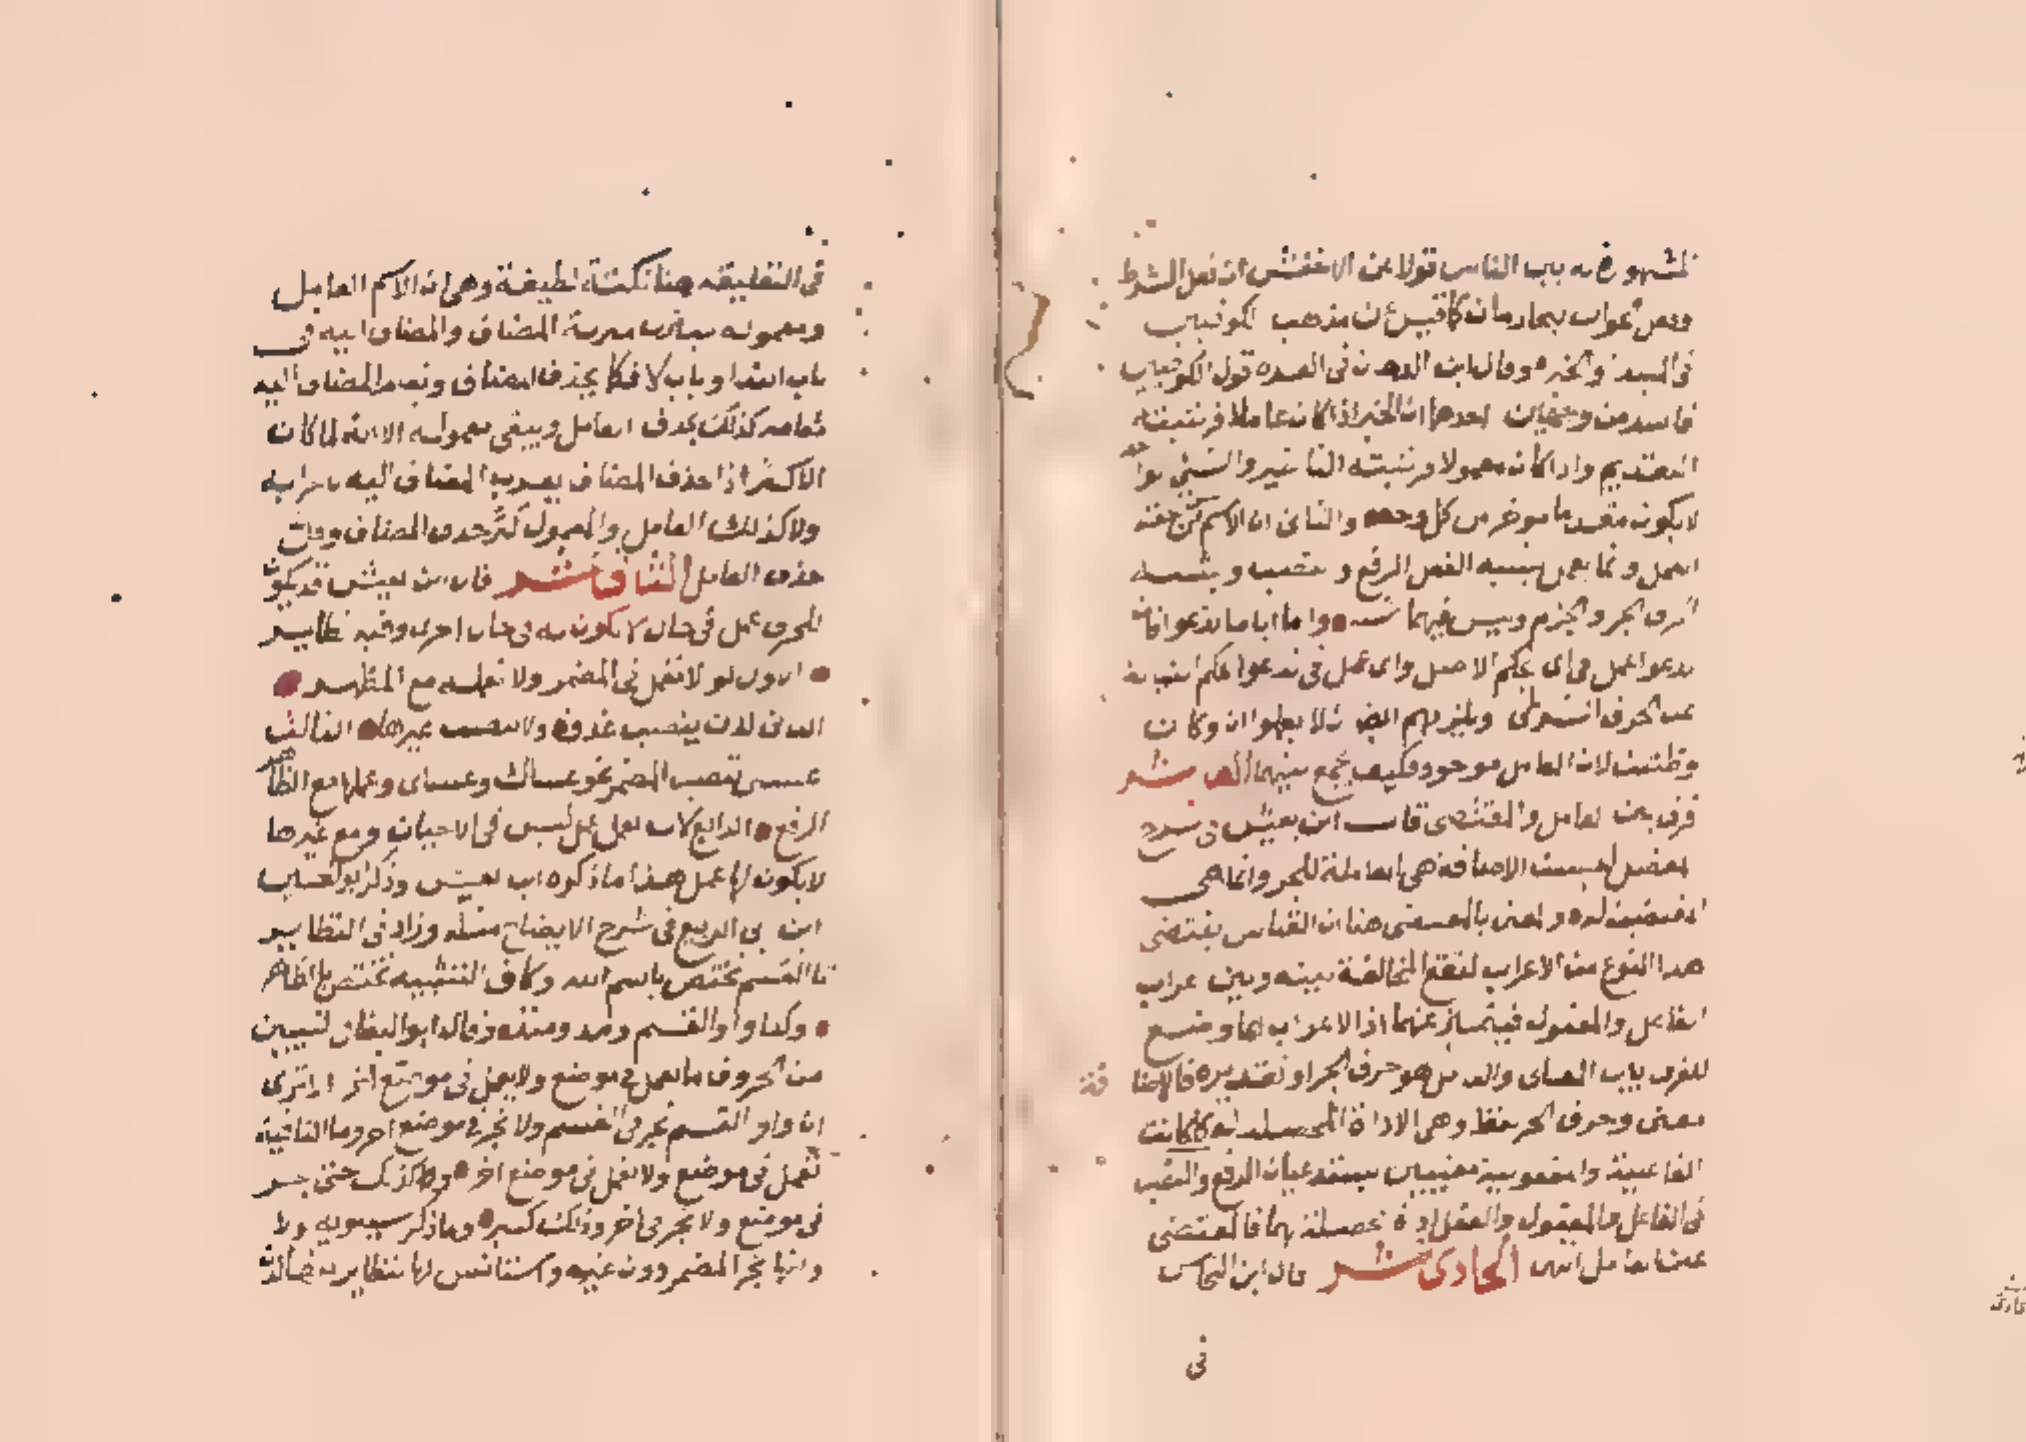 المشهور في باب الناس قولا عن الاخفش ان فعل الشرط
وفعل الجواب يتجازمان كما قيل عن مذهب الكوفيين
في المبتدا والخبر وقال ابن الدهان في الغرة قول الكوفيين
فاسد من وجهين احدهما ان الخبر اذا كان عاملا فرتبته
التقديم واذا كان معمولا فرتبته التاخير والشي الواحد
لا يكون مقدما موخرا من كل وجه والثاني ان الاسم ليس حقه
العمل وانما يعمل بشبه الفعل الرفع والنصب وبشبه
الحرف الجر والجزم وليس فيهما شبه واما اياما تدعوا فان
تدعوا عمل في اي بحكم الاصل واي عمل في تدعوا بحكم النيابة
عن الحرف الشرطي ويلزمهم ايضا ان لا يعملوا ان وكان
وظننت لان العامل موجود فكيف يجمع بينهما العاشر
فرق بين العامل والمقتضي قال ابن يعيش في شرح
المفصل ليست الاضافة هي العاملة للجر وانما هي
المقتضية له والمعنى بالمقتضي هنا ان القياس يقتضي
هذا النوع من الاعراب لتقع المخالفة بينه وبين اعراب
الفاعل والمفعول فيتميز عنهما اذ الاعراب انما وضع
للفرق بين المعاني والعامل هو حرف الجر او تقديره فالاضافة
معنى وحرف الجر لفظ وهي الاداة المحصلة له كما كانت
الفاعلية والمفعولية معنيين يستدعيان الرفع والنصب
في الفاعل والمفعول والفعل اداة محصلة لهما فالمقتضي
غير العامل انتهى الحادي عشر قال ابن النحاس
في
في التعليقة هنا نكتة لطيفة وهي ان الاسم العامل
ومعموله يتنزلان منزلة المضاف والمضاف اليه في
باب النداء وباب لا فكما يحذف المضاف ويقام المضاف اليه
مقامه كذلك يحذف العامل ويبقى معموله الا انه لما كان
الاكثر اذا حذف المضاف يعرب المضاف اليه باعرابه
ولا كذلك العامل والمعمول كثر حذف المضاف وقل
حذف العامل الثاني عشر قال ابن يعيش قد يكون
للحرف عمل في حال لا يكون له في حال اخرى وفيه نظاير
الاول لولا تعمل في المضمر ولا تعمل مع المظهر
الثاني لدن ينصب غدوة ولا ينصب غيرها الثالث
عسى تنصب المضمر نحو عساك وعساي وعملها مع الظاهر
الرفع الرابع لات تعمل عمل ليس في الاحيان ومع غيرها
لا يكون لها عمل هذا ما ذكره ابن يعيش وذكر ابو الحسين
ابن ابي الربيع في شرح الايضاح مثله وزاد في النظاير
تا القسم تختص باسم الله وكاف التشبيه تختص بالظاهر
وكذا واو القسم ومذ ومنذ وقال ابو البقاء في التبيين
من الحروف ما يعمل في موضع ولا يعمل في موضع اخر الا ترى
ان واو القسم تجر في القسم ولا تجر في موضع اخر وما النافية
تعمل في موضع ولا تعمل في موضع اخر وكذلك حتى تجر
في موضع ولا تجر في اخر وذلك كثير وما ذكر سيبويه لولا
وانها تجر المضمر دون غيره واستانس لها بنظاير